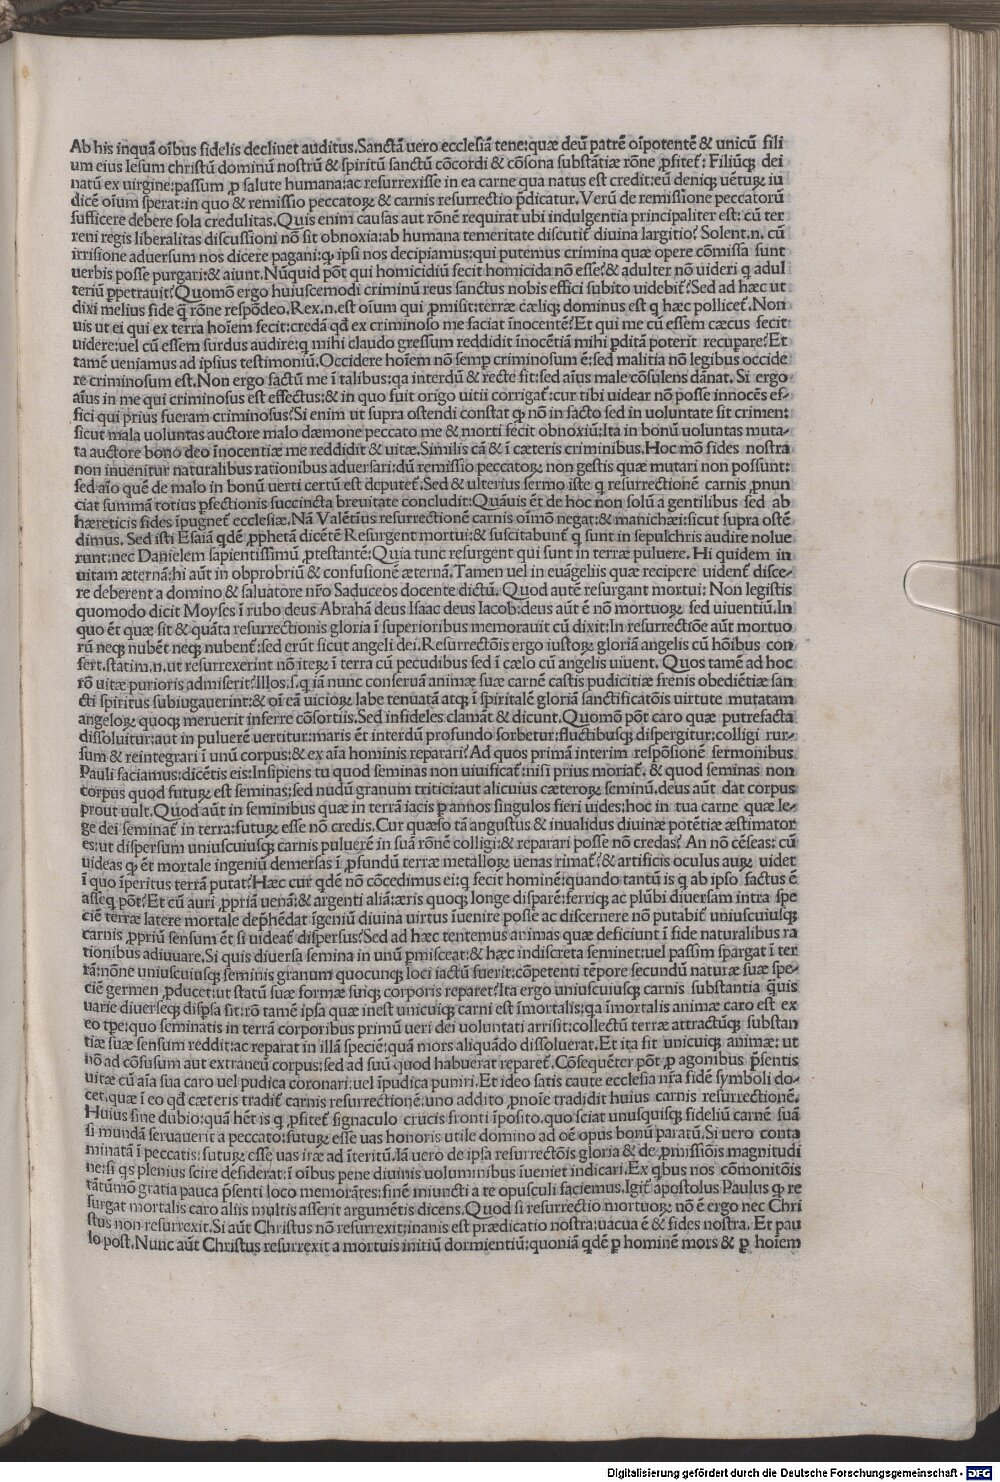 Ab his inquā oībus fidelis declinet auditus.Sanctā vero ecclesiā tene:quæ deū patrē oīpotentē & unicū fili
um eius Iesum christū dominū nostrū & spiritū sanctū cōcordi & cōsona substātiæ rōne ꝓfitet̄: Filiūqꝫ dei
natū ex virgine:passum ꝓ salute humana:ac resurrexisse in ea carne qua natus est credit:eū deniqꝫ uētuꝝ iu
dicē oīum sperat:in quo & remissio peccatoꝝ & carnis resurrectio p̄dicatur.Verū de remissione peccatorū
sufficere debere sola credulitas.Quis enim causas aut rōnē requirat ubi indulgentia principaliter est: cū ter
reni regis liberalitas discussioni nō sit obnoxia:ab humana temeritate discutit̄ divina largitio? Solent.n. cū
irrisione aduersum nos dicere pagani:qꝫ ipsi nos decipiamus:qui putemus crimina quæ opere cōmissa sunt
uerbis posse purgari:& aiunt.Nūquid pōt qui homicidiū fecit homicida nō esse?& adulter nō uideri q adul
teriū ꝑpetrauit?Quomō ergo huiuscemodi criminū reus sanctus nobis effici subito uidebit̄?Sed ad hæc ut
dixi melius fide q̄ rōne respōdeo.Rex.n.est oīum qui ꝓmisit:terræ cæliqꝫ dominus est q hæc pollicet̄.Non
uis ut ei qui ex terra hoīem fecit:credā qd̄ ex criminoso me faciat īnocentē?Et qui me cū essem cæcus fecit
uidere:uel cū essem surdus audire:q mihi claudo gressum reddidit īnocētiā mihi ꝑditā poterit recuꝑare?Et
tamē ueniamus ad ipsius testimoniū.Occidere hoīem nō semꝑ criminosum ē:sed malitia nō legibus occide
re criminosum est.Non ergo factū me ī talibus:qa interdū & recte fit:sed aīus male cōsulens dānat. Si ergo
aīus in me qui criminosus est effectus:& in quo fuit origo uitii corrigat̄:cur tibi uidear nō posse innocēs ef-
fici qui prius fueram criminosus?Si enim ut supra ostendi constat qꝫ nō in facto sed in uoluntate sit crimen:
sicut mala uoluntas auctore malo dæmone peccato me & morti fecit obnoxiū:Ita in bonū uoluntas muta-
ta auctore bono deo īnocentiæ me reddidit & uitæ.Similis cā & ī cæteris criminibus.Hoc mō fides nostra
non inuenitur naturalibus rationibus aduersari:dū remissio peccatoꝝ non gestis quæ mutari non possunt:
sed aīo quē de malo in bonū uerti certū est deputet̄.Sed & ulterius sermo iste q resurrectionē carnis ꝓnun
ciat summā totius ꝑfectionis succincta breuitate concludit:Quāuis ēt de hoc non solū a gentilibus sed ab
hæreticis fides īpugnet̄ ecclesiæ.Nā Valētīus resurrectionē carnis oīmō negat:& manichæi:sicut supra ostē
dimus. Sed isti Esaiā qdē ꝓphetā dicētē Resurgent mortui:& suscitabunt̄ q sunt in sepulchris audire nolue
runt:nec Danielem sapientissimū ꝓtestantē:Quia tunc resurgent qui sunt in terræ puluere. Hi quidem in
uitam æternā:hi aūt in obprobriū & confusionē æternā.Tamen uel in euāgeliis quæ recipere uident̄ disce-
re deberent a domino & saluatore nr̄o Saduceos docente dictū. Quod autē resurgant mortui: Non legistis
quomodo dicit Moyses ī rubo deus Abrahā deus Isaac deus Iacob:deus aūt ē nō mortuoꝝ sed uiuentiū.In
quo ēt quæ sit & quāta resurrectionis gloria ī superioribus memorauit cū dixit:In resurrectiōe aūt mortuo
rū neqꝫ nubēt neqꝫ nubent̄:sed erūt sicut angeli dei.Resurrectōis ergo iustoꝝ gloriā angelis cū hōibus con
fert.statim.n.ut resurrexerint nō iteꝝ ī terra cū pecudibus sed ī cælo cū angelis uiuent. Quos tamē ad hoc
rō vitæ purioris admiserit?Illos.s.q iā nunc conseruā animæ suæ carnē castis pudicitiæ frenis obediētiæ san
cti spiritus subiugauerint:& oī eā uicioꝝ labe tenuatā atqꝫ ī spiritalē gloriā sanctificatōis virtute mutatam
angeloꝝ quoqꝫ meruerit inserre cōsortiis.Sed infideles clamāt & dicunt.Quomō pōt caro quæ putrefacta
dissoluitur:aut in puluerē uertitur:maris ēt interdū profundo sorbetur:fluctibusqꝫ dispergitur:colligi rur-
sum & reintegrari ī unū corpus:& ex aīa hominis reparari?Ad quos primā interim respōsionē sermonibus
Pauli faciamus:dicētis eis:Insipiens tu quod seminas non uiuificat̄:nisi prius moriat̄. & quod seminas non
corpus quod futuꝝ est seminas:sed nudū granum tritici:aut alicuius cæteroꝝ seminū.deus aūt dat corpus
prout uult.Quod aūt in seminibus quæ in terrā iacis ꝑ annos singulos fieri uides:hoc in tua carne quæ le-
ge dei seminat̄ in terra:futuꝝ esse nō credis.Cur quæso tā angustus & inualidus divinæ potētiæ æstimator
es:ut dispersum uniuscuiusqꝫ carnis puluerē in suā rōnē colligi:& reparari posse nō credas? An nō cēseas: cū
uideas qꝫ ēt mortale ingeniū demersas ī ꝓfundū terræ metalloꝝ uenas rimat̄?& artificis oculus auꝝ uidet
ī quo īperitus terrā putat?Hæc cur qdē nō cōcedimus ei:q fecit hominē:quando tantū is q ab ipso factus ē
asseq̄ pōt?Et cū auri ꝓpriā uenā:& argenti aliā:æris quoqꝫ longe disparē:ferriqꝫ ac plūbi diversam intra spe
ciē terræ latere mortale dep̄hēdat īgeniū divina virtus īuenire posse ac discernere nō putabit̄ uniuscuiusqꝫ
carnis ꝓpriū sensum ēt si videat̄ dispersus?Sed ad hæc tentemus animas quæ deficiunt ī fide naturalibus ra
tionibus adiuuare.Si quis diuersa semina in unū ꝑmisceat:& hæc indiscreta seminet:uel passim spargat ī ter
rā:nōne uniuscuiusqꝫ seminis granum quocunqꝫ loci iactū fuerit:cōpetenti tēpore secundū naturæ suæ spe-
ciē germen ꝓducet:ut statū suæ formæ suiqꝫ corporis reparet?Ita ergo uniuscuiusqꝫ carnis substantia q̄uis
uarie diverseqꝫ disꝑsa sit:rō tamē ipsa quæ inest unicuiqꝫ carni est īmortalis:qa īmortalis animæ caro est ex
eo tꝑe:quo seminatis in terrā corporibus primū ueri dei voluntati arrisit:collectū terræ attractūqꝫ substan
tiæ suæ sensum reddit:ac reparat in illā speciē:quā mors aliquādo dissoluerat.Et ita fit unicuiqꝫ animæ: ut
nō ad cōfusum aut extraneū corpus:sed ad suū quod habuerat reparet̄.Cōsequēter pōt ꝓ agonibus p̄sentis
vitæ cū aīa sua caro vel pudica coronari:uel īpudica puniri.Et ideo satis caute ecclesia nr̄a fidē symboli do-
cet.quæ ī eo qd̄ cæteris tradit̄ carnis resurrectionē:uno addito ꝓnoīe tradidit huius carnis resurrectionē.
Huius sine dubio:quā hēt is q ꝓfitet̄ signaculo crucis fronti īposito.quo sciat unusquisqꝫ fideliū carnē suā
si mundā seruauerit a peccato:futuꝝ esse uas honoris utile domino ad oē opus bonū paratū.Si uero conta
minatā ī peccatis:futuꝝ esse uas iræ ad īteritū.Iā uero de ipsa resurrectōis gloria & de ꝓmissiōis magnitudi
ne:si qs plenius scire desiderat:ī oībus pene divinis uoluminibus īueniet indicari.Ex qbus nos cōmonitōis
tātūmō gratia pauca p̄senti loco memorātes:finē iniuncti a te opusculi faciemus.Igit̄ apostolus Paulus qꝫ re
surgat mortalis caro aliis multis asserit argumētis dicens.Quod si resurrectio mortuoꝝ nō ē ergo nec Chri
stus non resurrexit.Si aūt Christus nō resurrexit:inanis est prædicatio nostra:uacua ē & fides nostra. Et pau
lo post.Nunc aūt Christus resurrexit a mortuis initiū dormientiū:quoniā qdē ꝑ hominē mors & ꝑ hoīem
Digitalisierung gefördert durch die Deutsche Forschungsgemeinschaft - DFG